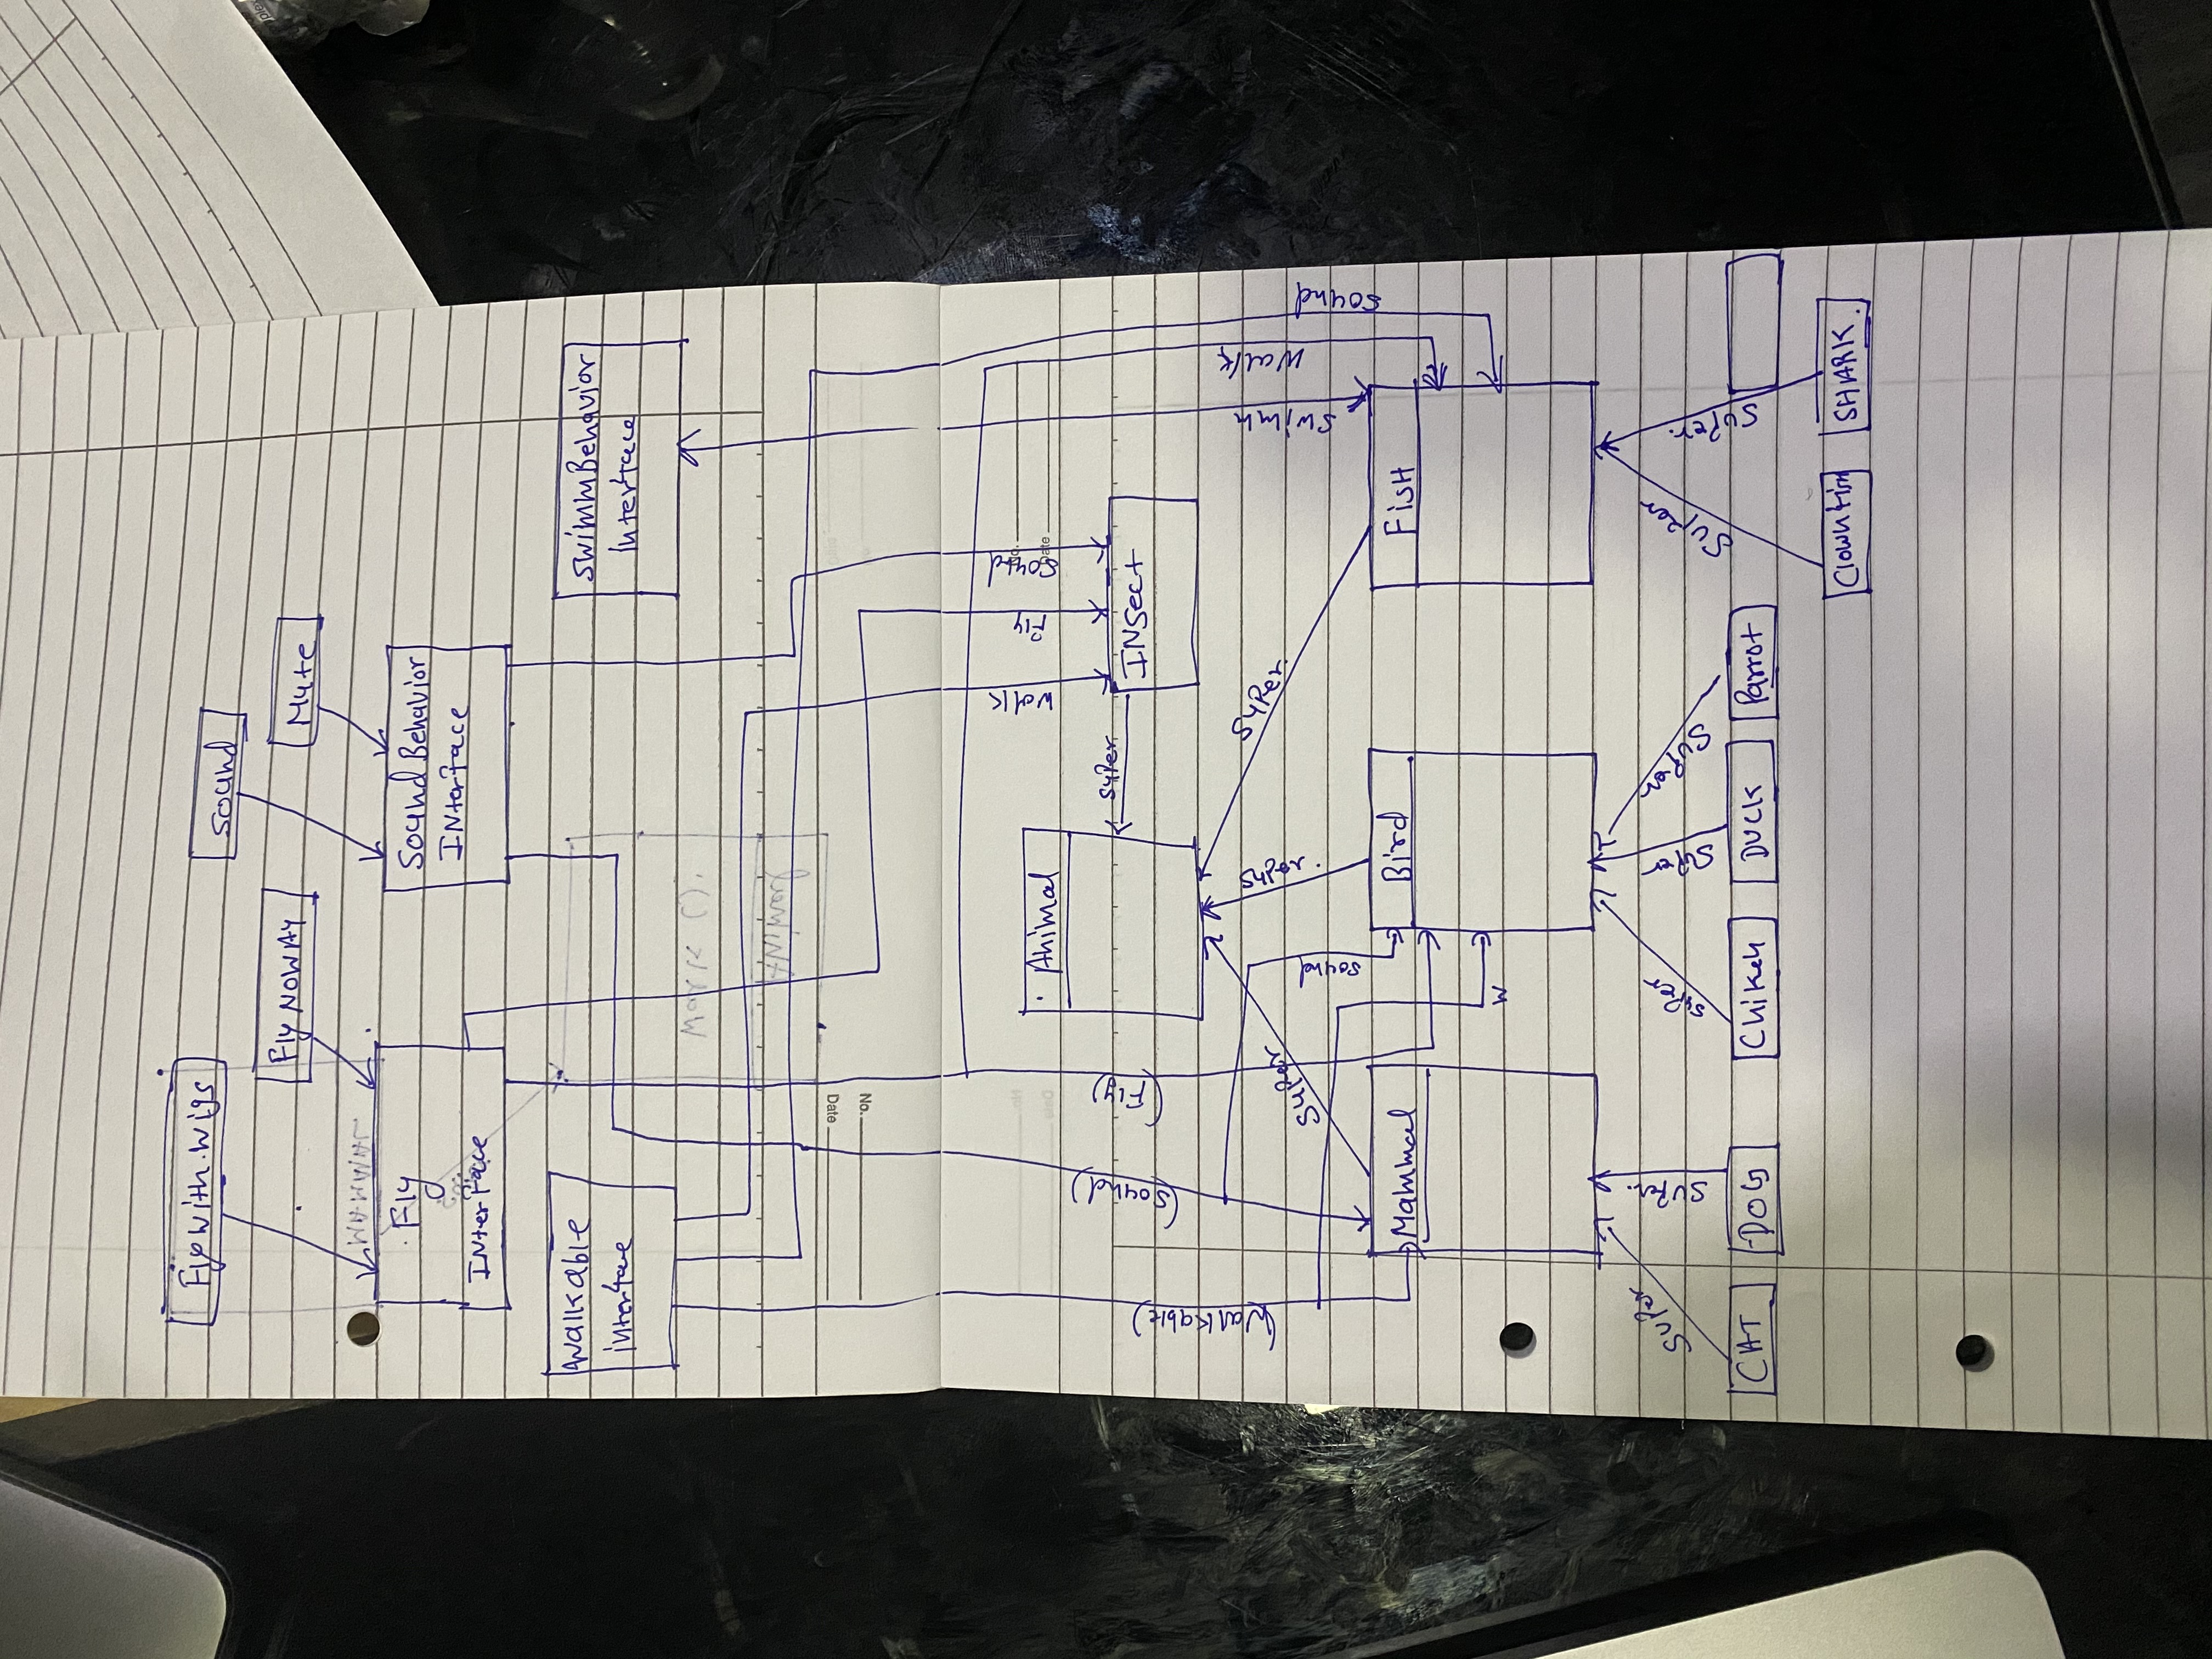 Fly with.wigs
Sound
Fly NOWAY
Mute
Fly
INterface
Sound Behavior
INterface
Walkable
interface
SwimmBehavior
Interface
Work ().
Animal
Date
No.
No.
Date
Walk
Fly
Sound
Date
Animal
super
INsect
(Walkable)
(Sound)
(Fly)
super
super.
super.
Sound
Swimm
Walk
Sound
Mammal
Bird
Fish
W
super
super.
super
super
super
super
super.
CAT
DOG
Chiken
DUCK
Parrot
Clownfish
SHARK.